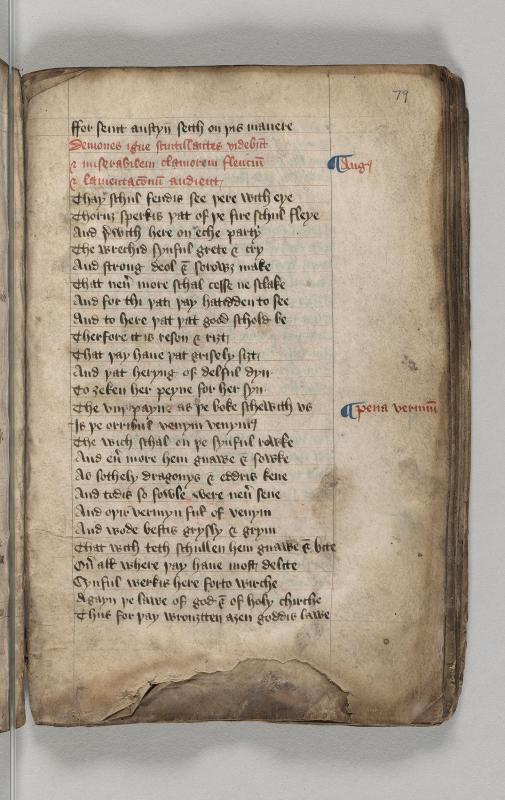 79
ffor seint austyn seith on þis manere
Demones igne scintillantes videbūt
⁊ miserabilem clamorem flenciū
¶Aug⁹
⁊ lamentacōnū audient
Thay schul fendis see þere with eye
Thoruz sperkis þat of þe fire schul fleye
And þ̵with here on eche party
The wrechid synful grete ⁊ cry
And strong deol ⁊ sorowz make
That neū more schal cesse ne slake
And for thi þat þay hatedden to see
And to here þat þat good schold be
Therfore it is reson ⁊ rizt
That þay haue þat grisely sizt
And þat heryng of delful dyn
To zeken her peyne for her syn
The viij payne as þe boke schewith vs
¶pena vermiū
Is þe orribul venym venym⁹
The wich schal on þe synful rowke
And eū more hem gnawe ⁊ sowke
As sothely dragonys ⁊ eddris kene
And todis so fowle were neū sene
And oþir vermyn ful of venym
And wode bestis grysly ⁊ grym
That with teth schullen hem gnawe ⁊ bite
Oū all where þay haue most delite
Synful werkis here forto wirche
Agayn þe lawe of god ⁊ of holy chirche
Thus for þay wrouztten azen goddis lawe